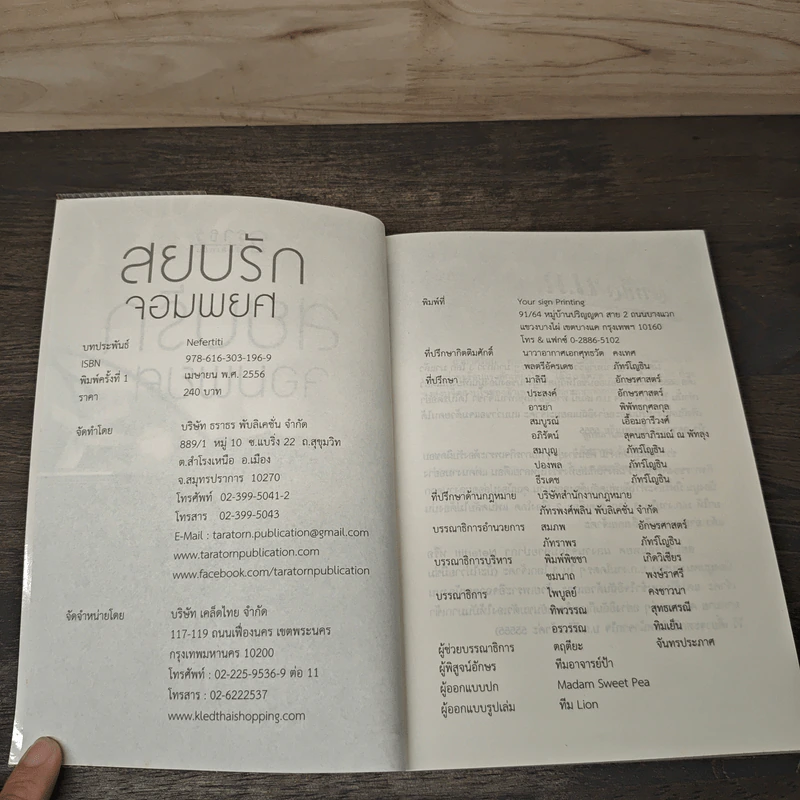 สยบรัก
จอมพยศ
บทประพันธ์ Nefertiti
ISBN 978-616-303-196-9
พิมพ์ครั้งที่ 1 เมษายน พ.ศ. 2556
ราคา 240 บาท
จัดทำโดย บริษัท ธราธร พับลิเคชั่น จำกัด
889/1 หมู่ 10 ซ.แบริ่ง 22 ถ.สุขุมวิท
ต.สำโรงเหนือ อ.เมือง
จ.สมุทรปราการ 10270
โทรศัพท์ 02-399-5041-2
โทรสาร 02-399-5043
E-Mail : taratorn.publication@gmail.com
www.taratornpublication.com
www.facebook.com/taratornpublication
จัดจำหน่ายโดย บริษัท เคล็ดไทย จำกัด
117-119 ถนนเฟื่องนคร เขตพระนคร
กรุงเทพมหานคร 10200
โทรศัพท์ : 02-225-9536-9 ต่อ 11
โทรสาร : 02-6222537
www.kledthaishopping.com
พิมพ์ที่ Your sign Printing
91/64 หมู่บ้านปริญญดา สาย 2 ถนนบางแวก
แขวงบางไผ่ เขตบางแค กรุงเทพฯ 10160
โทร & แฟกซ์ 0-2886-5102
ที่ปรึกษากิตติมศักดิ์ นาวาอากาศเอกศุทธวัด คงเทศ
พลตรีอัครเดช ภัทร์โญธิน
ที่ปรึกษา มาลินี อักษรศาสตร์
ประสงค์ อักษรศาสตร์
อารยา พิพัทธกุศลกุล
สมบูรณ์ เอื้อมอารีวงศ์
อภิรัตน์ สุคนธาภิรมณ์ ณ พัทลุง
สมบุญ ภัทร์โญธิน
ปองพล ภัทร์โญธิน
ธีรเดช ภัทร์โญธิน
ที่ปรึกษาด้านกฎหมาย บริษัทสำนักงานกฎหมาย
ภัทรพงศ์พลิน พับลิเคชั่น จำกัด
บรรณาธิการอำนวยการ สมภพ อักษรศาสตร์
ภัทราพร ภัทร์โญธิน
บรรณาธิการบริหาร พิมพ์พิชชา เกิดวิเชียร
ชมนาถ พงษ์ราศรี
บรรณาธิการ ไพบูลย์ คงขาวนา
ทิพวรรณ สุทธเศรณี
อรวรรณ ทิมเย็น
ผู้ช่วยบรรณาธิการ ตฤติยะ จันทรประภาศ
ผู้พิสูจน์อักษร ทีมอาจารย์ป้า
ผู้ออกแบบปก Madam Sweet Pea
ผู้ออกแบบรูปเล่ม ทีม Lion